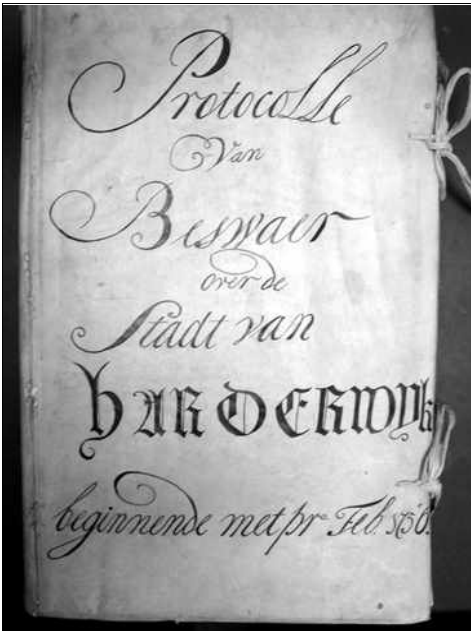 Protocolle
Van
Beswaer
over de
Stadt van
HARDERWyk
beginnende met pr Feb.